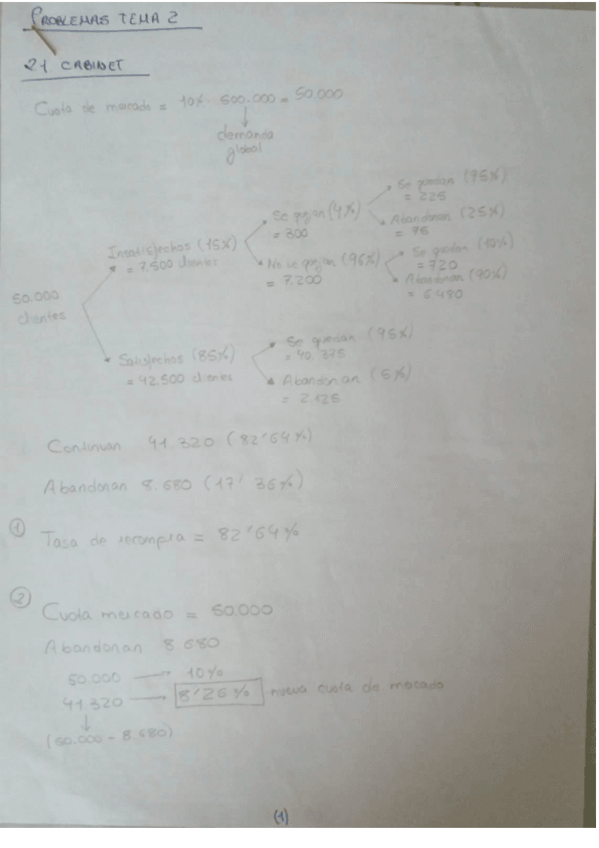 PROBLEMAS TEMA 2
2.1 CABINET
Cuota de mercado = 10% · 500.000 = 50.000
demanda
global
Se quedan (75%)
= 225
Se quejan (4%)
= 300
Abandonan (25%)
= 75
Insatisfechos (15%)
= 7.500 clientes
No se quejan (96%)
= 7.200
Se quedan (10%)
= 720
Abandonan (90%)
= 6.480
50.000
clientes
Satisfechos (85%)
= 42.500 clientes
Se quedan (95%)
= 40.375
Abandonan (5%)
= 2.125
Continuan 41.320 (82'64%)
Abandonan 8.680 (17'36%)
① Tasa de recompra = 82'64%
② Cuota mercado = 50.000
Abandonan 8.680
50.000 → 10%
41.320 → 8'26% nueva cuota de mercado
(50.000 - 8.680)
(1)